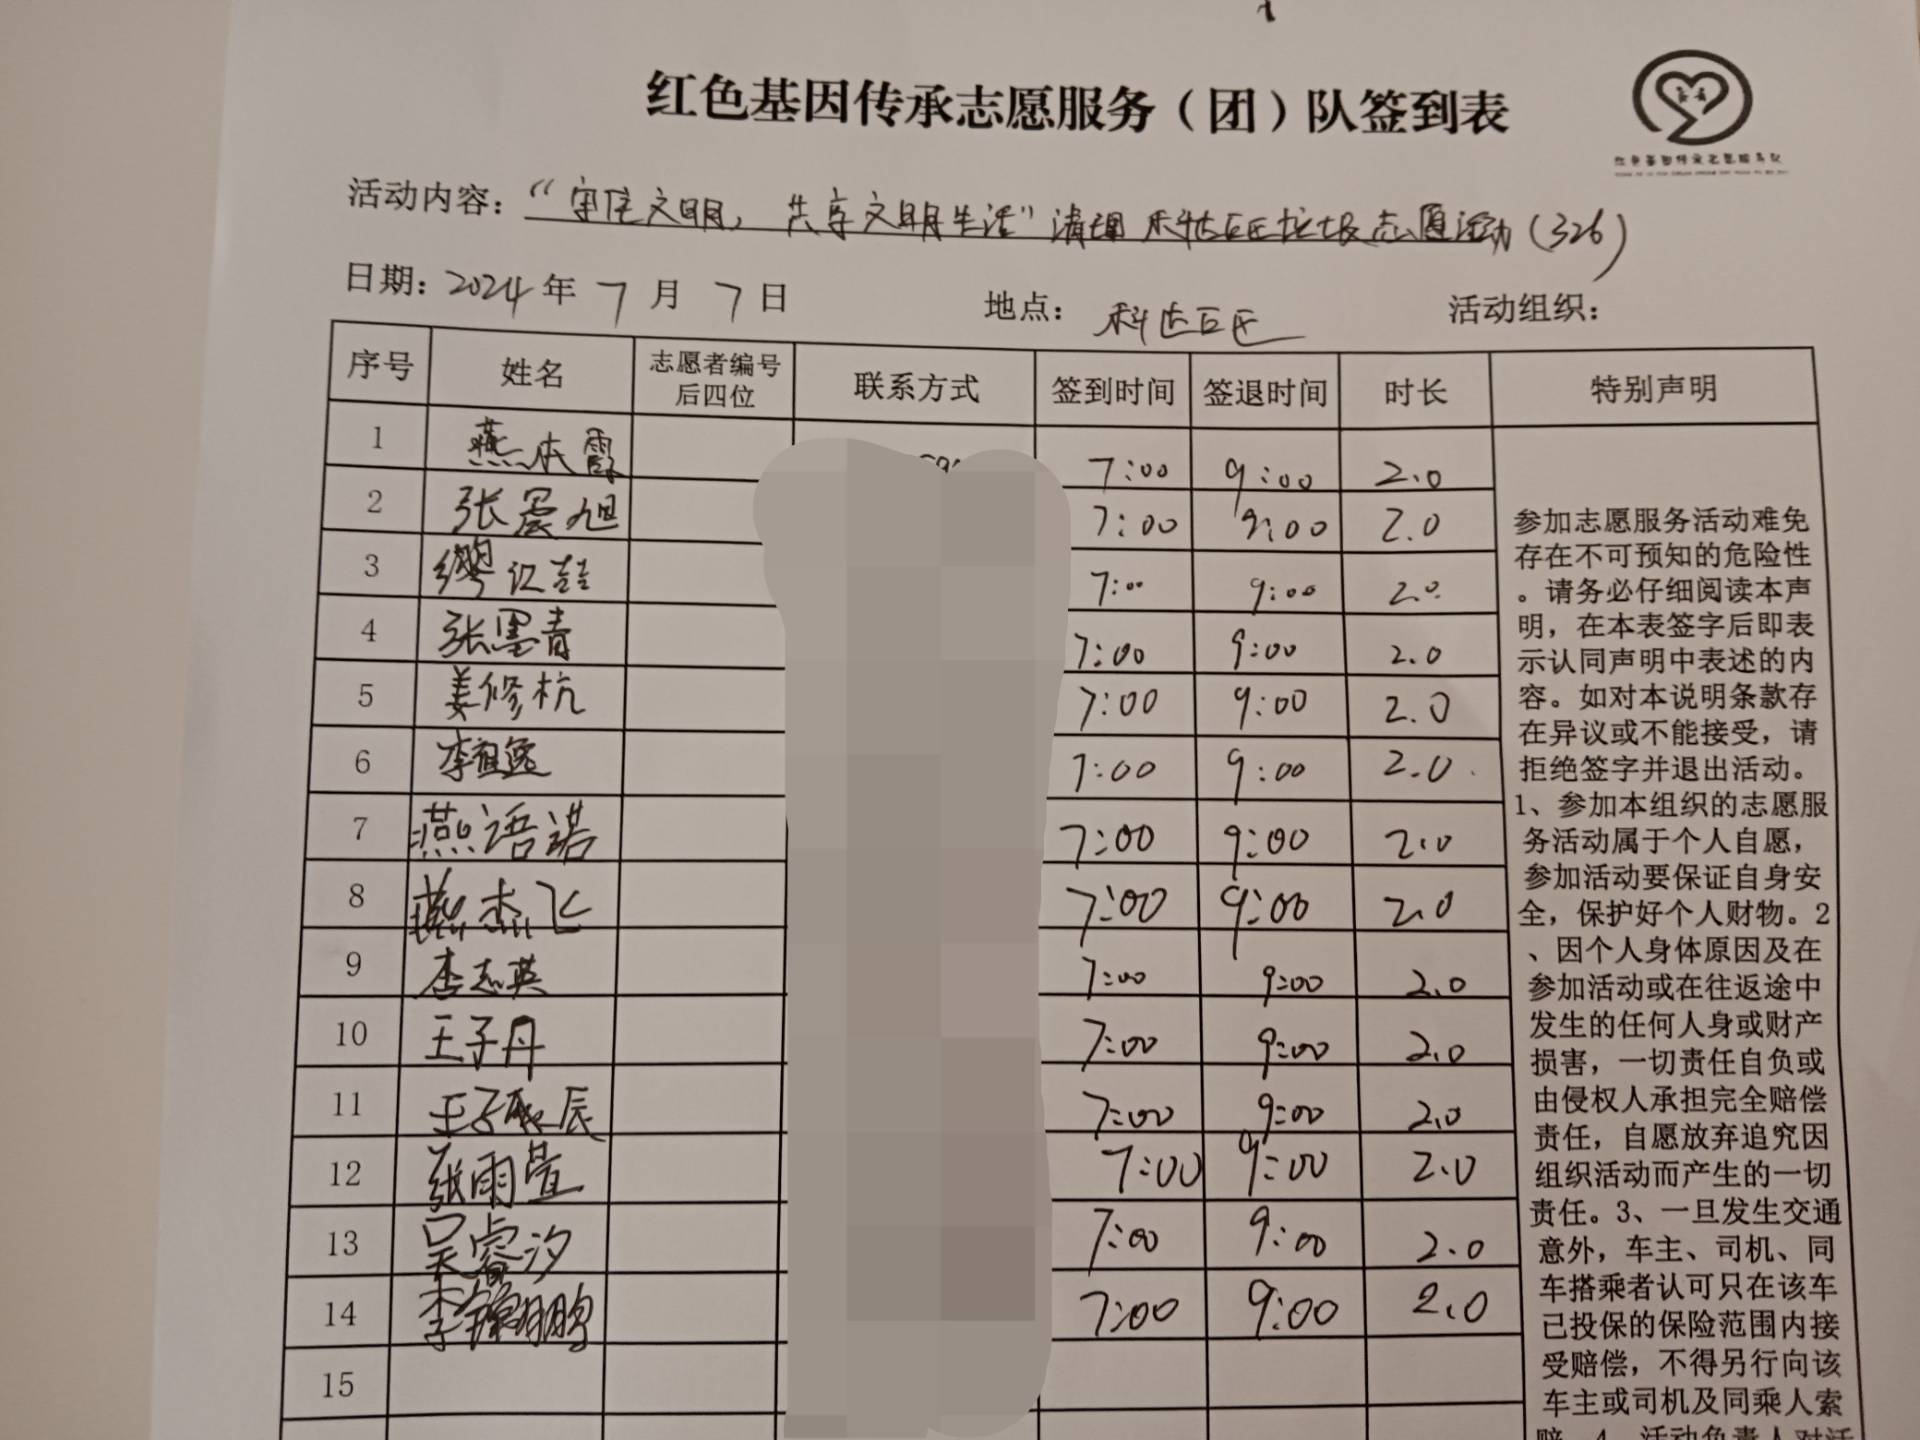 红色基因传承志愿服务（团）队签到表
活动内容：“守住文明，共享文明生活”清理科达巨匠垃圾志愿活动（326）
日期：2024年7月7日 地点：科达巨匠 活动组织：
序号 姓名 志愿者编号后四位 联系方式 签到时间 签退时间 时长 特别声明
1 燕本霞 7:00 9:00 2.0
2 张宸旭 7:00 9:00 2.0
3 缪江喆 7:00 9:00 2.0
4 张墨青 7:00 9:00 2.0
5 姜修杭 7:00 9:00 2.0
6 李祖逸 7:00 9:00 2.0
7 燕语诺 7:00 9:00 2.0
8 燕杰飞 7:00 9:00 2.0
9 李志英 7:00 9:00 2.0
10 王子丹 7:00 9:00 2.0
11 王子辰 7:00 9:00 2.0
12 张雨萱 7:00 9:00 2.0
13 吴睿汐 7:00 9:00 2.0
14 李鹏 7:00 9:00 2.0
15
参加志愿服务活动难免
存在不可预知的危险性
。请务必仔细阅读本声
明，在本表签字后即表
示认同声明中表述的内
容。如对本说明条款存
在异议或不能接受，请
拒绝签字并退出活动。
1、参加本组织的志愿服
务活动属于个人自愿，
参加活动要保证自身安
全，保护好个人财物。2
、因个人身体原因及在
参加活动或在往返途中
发生的任何人身或财产
损害，一切责任自负或
由侵权人承担完全赔偿
责任，自愿放弃追究因
组织活动而产生的一切
责任。3、一旦发生交通
意外，车主、司机、同
车搭乘者认可只在该车
已投保的保险范围内接
受赔偿，不得另行向该
车主或司机及同乘人索
赔。4、活动负责人对活